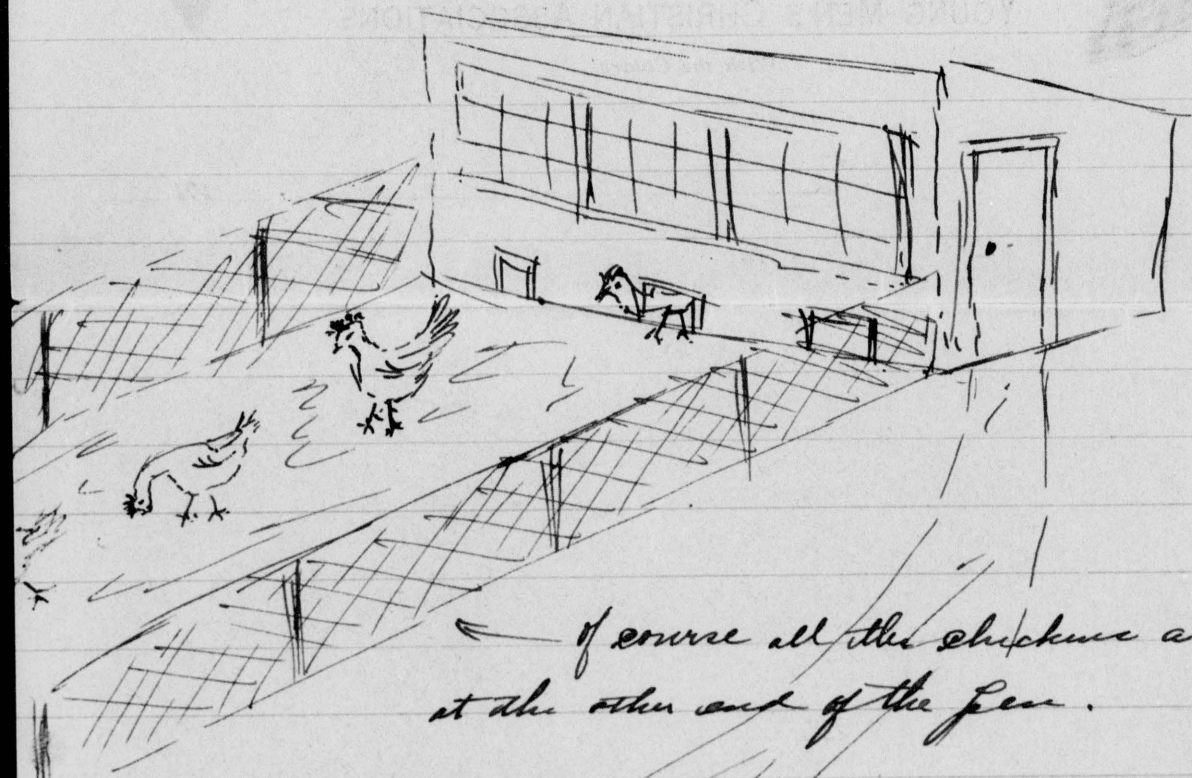 of course all the chickens a
at the other end of the pen.